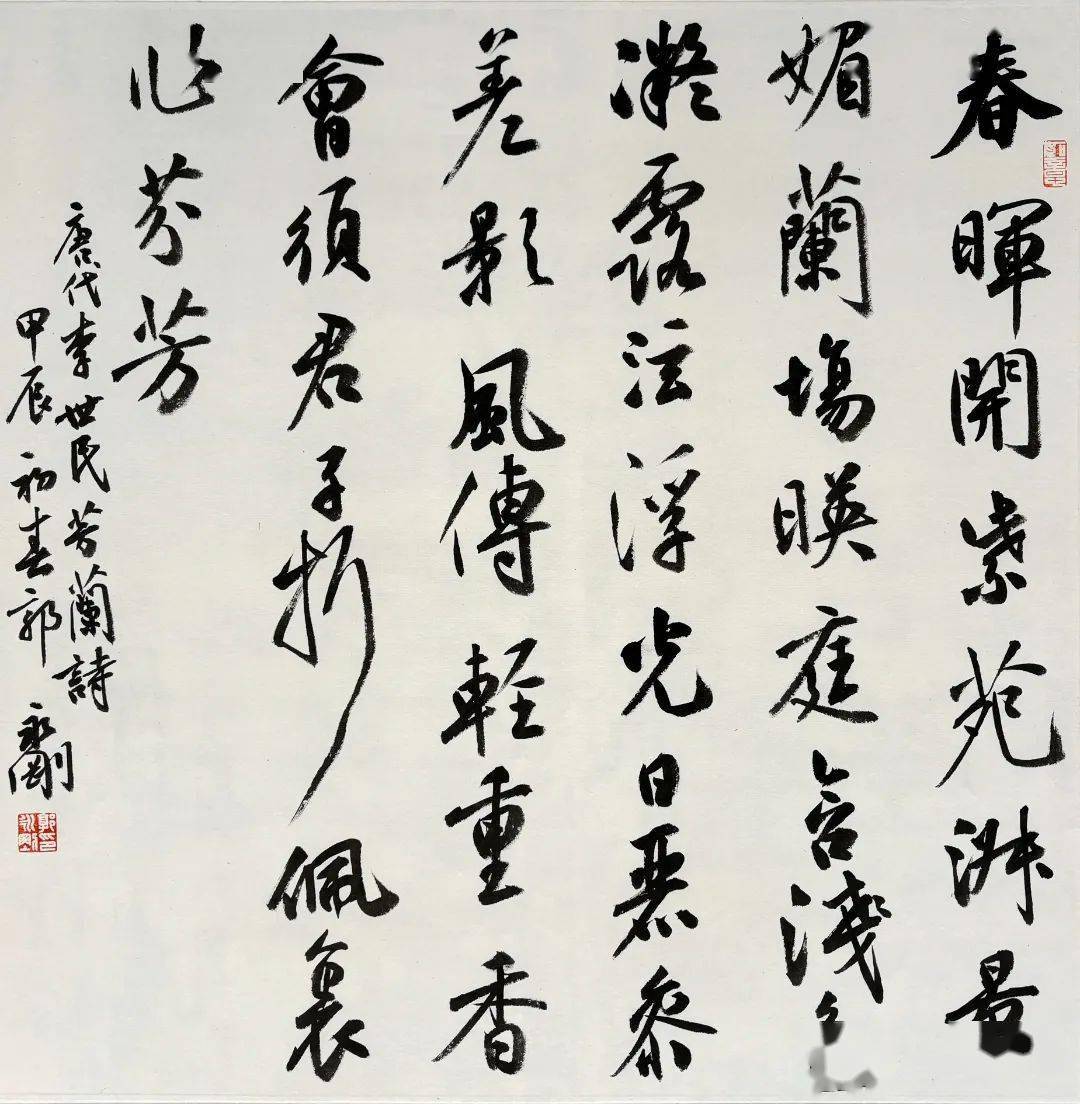 春暉開紫苑淑景
媚蘭場暎庭含淺色
凝露泫浮光日麗參
差影風傳輕重香
會須君子折佩裏
作芬芳
唐代李世民芳蘭詩
甲辰初春郭永剛
郭永剛印